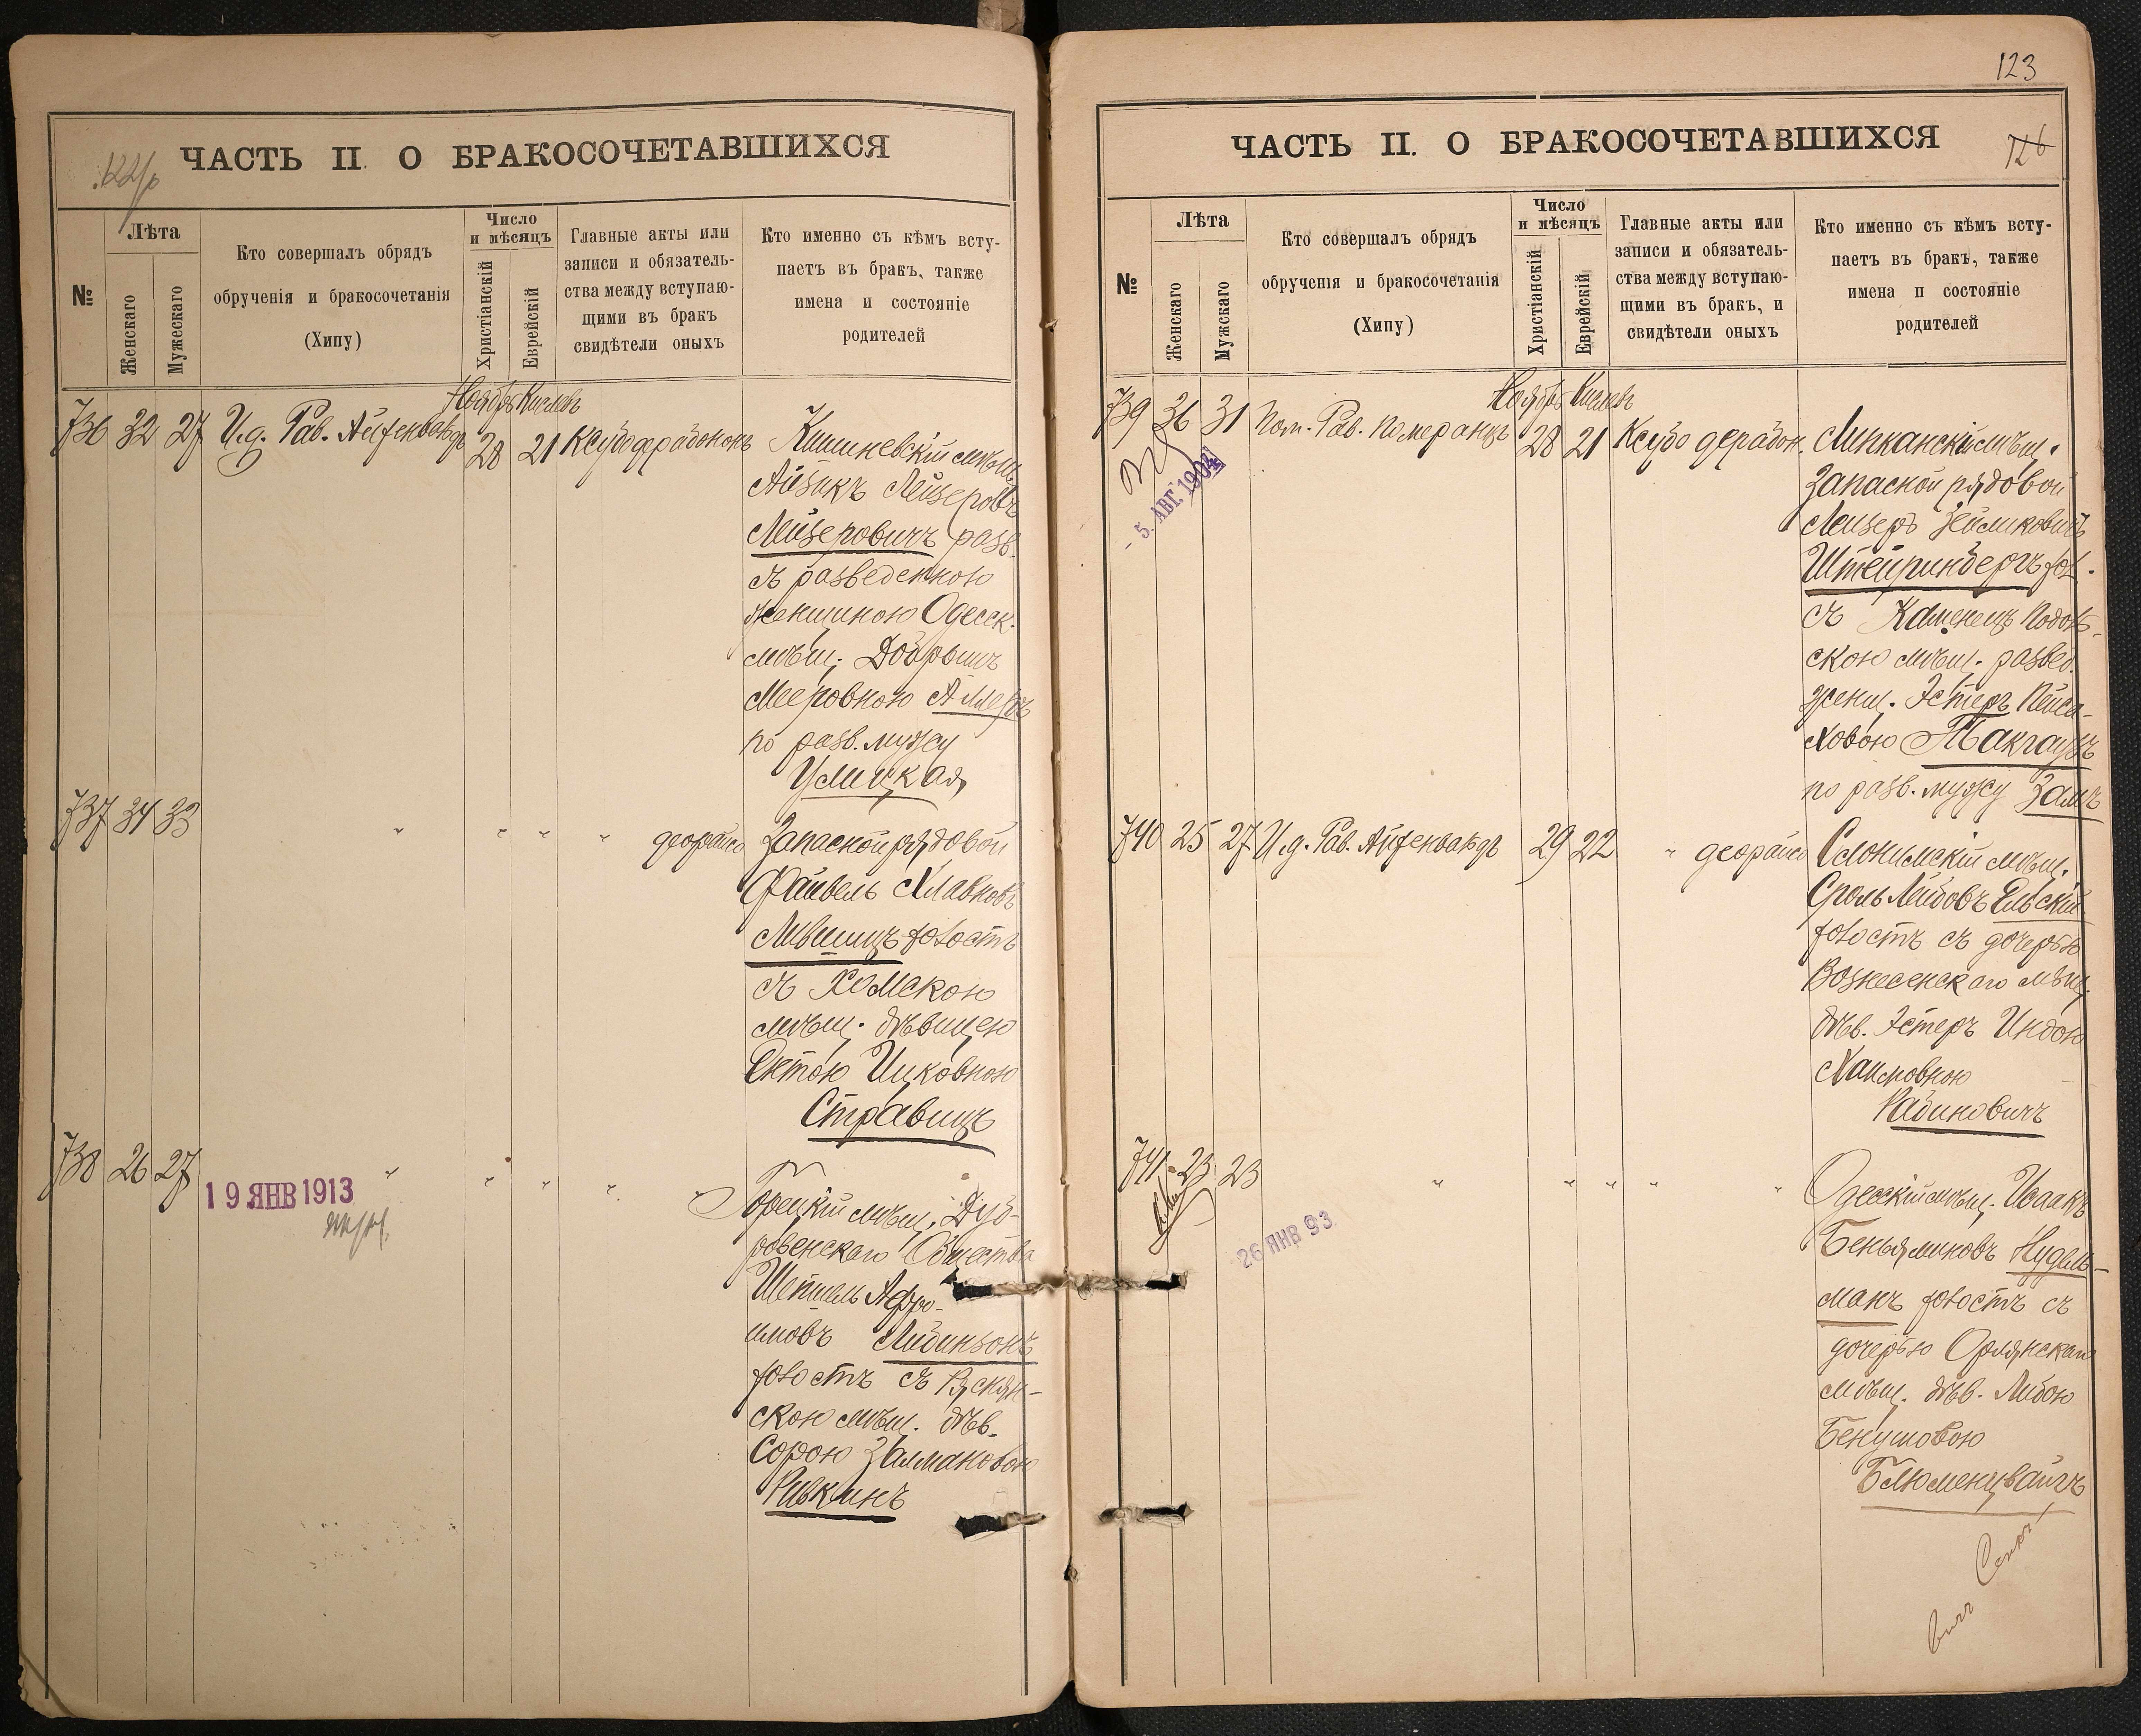 ЧАСТЬ II. О БРАКОСОЧЕТАВШИХСЯ
№
Лѣта
Женскаго
Мужескаго
Кто совершалъ обрядъ
обрученія и бракосочетанія
(Хипу)
Число
и мѣсяцъ
Христіанскій
Еврейскій
Главные акты или
записи и обязатель-
ства между вступаю-
щими въ бракъ
свидѣтели оныхъ
Кто именно съ кѣмъ всту-
паетъ въ бракъ, также
имена и состояніе
родителей
Ноябрь Кислевъ
736 32 27 И.д. Рав. Айзенвальдъ 28 21
Кишиневскій мѣщ.
Айзикъ Лейзеровъ
Лейзеровичъ разв.
съ разведенною
женщиною Одесск.
мѣщ.
Мееровною Аллеръ
по разв. мужу
Улицкая
737 34 33 " " " " деорайсо
Запасной рядовой
Файвель Хлавновъ
Лившицъ холостъ
съ
мѣщ. дѣвицею
Ентою Ицковною
Стравицъ
738 26 27 " " " " "
19 ЯНВ 1913
Горецкій мѣщ. Дуб-
ровенскаго Общества
Шепшель Афро-
имовъ Либинзонъ
холостъ съ Ряснян-
скою мѣщ. дѣв.
Сорою Залмановою
Ривкинъ
123
ЧАСТЬ II. О БРАКОСОЧЕТАВШИХСЯ
126
№
Лѣта
Женскаго
Мужскаго
Кто совершалъ обрядъ
обрученія и бракосочетанія
(Хипу)
Число
и мѣсяцъ
Христіанскій
Еврейскій
Главные акты или
записи и обязатель-
ства между вступаю-
щими въ бракъ, и
свидѣтели оныхъ
Кто именно съ кѣмъ всту-
паетъ въ бракъ, также
имена и состояніе
родителей
Ноябрь Кислевъ
739 36 31 Пом. Рав. Померанцъ 28 21 Ксубо дерабон.
- 5. АВГ. 1904
Липканскій мѣщ.
Запасной рядовой
Лейзеръ Зейликовичъ
Штейринбергъ хол.
съ Каменецъ Подоль-
скою мѣщ. развед.
женщ. Эстеръ Пейса-
ховою Такгаузъ
по разв. мужу Залъ
740 25 27 И.д. Рав. Айзенвальдъ 29 22 " деорайсо
Слонимскій мѣщ.
Сроль Лейбовъ Ельскій
холостъ съ дочерью
Вознесенскаго мѣщ.
дѣв. Эстеръ Индою
Хаимовною
Рабиновичъ
741 23 23 " " " " "
26 ЯНВ 93.
Одесскій мѣщ. Исаакъ
Беньяминовъ Нудель-
манъ холостъ съ
дочерью Орлянскаго
мѣщ. дѣв. Либою
Бенушовою
Блюменцвайгъ